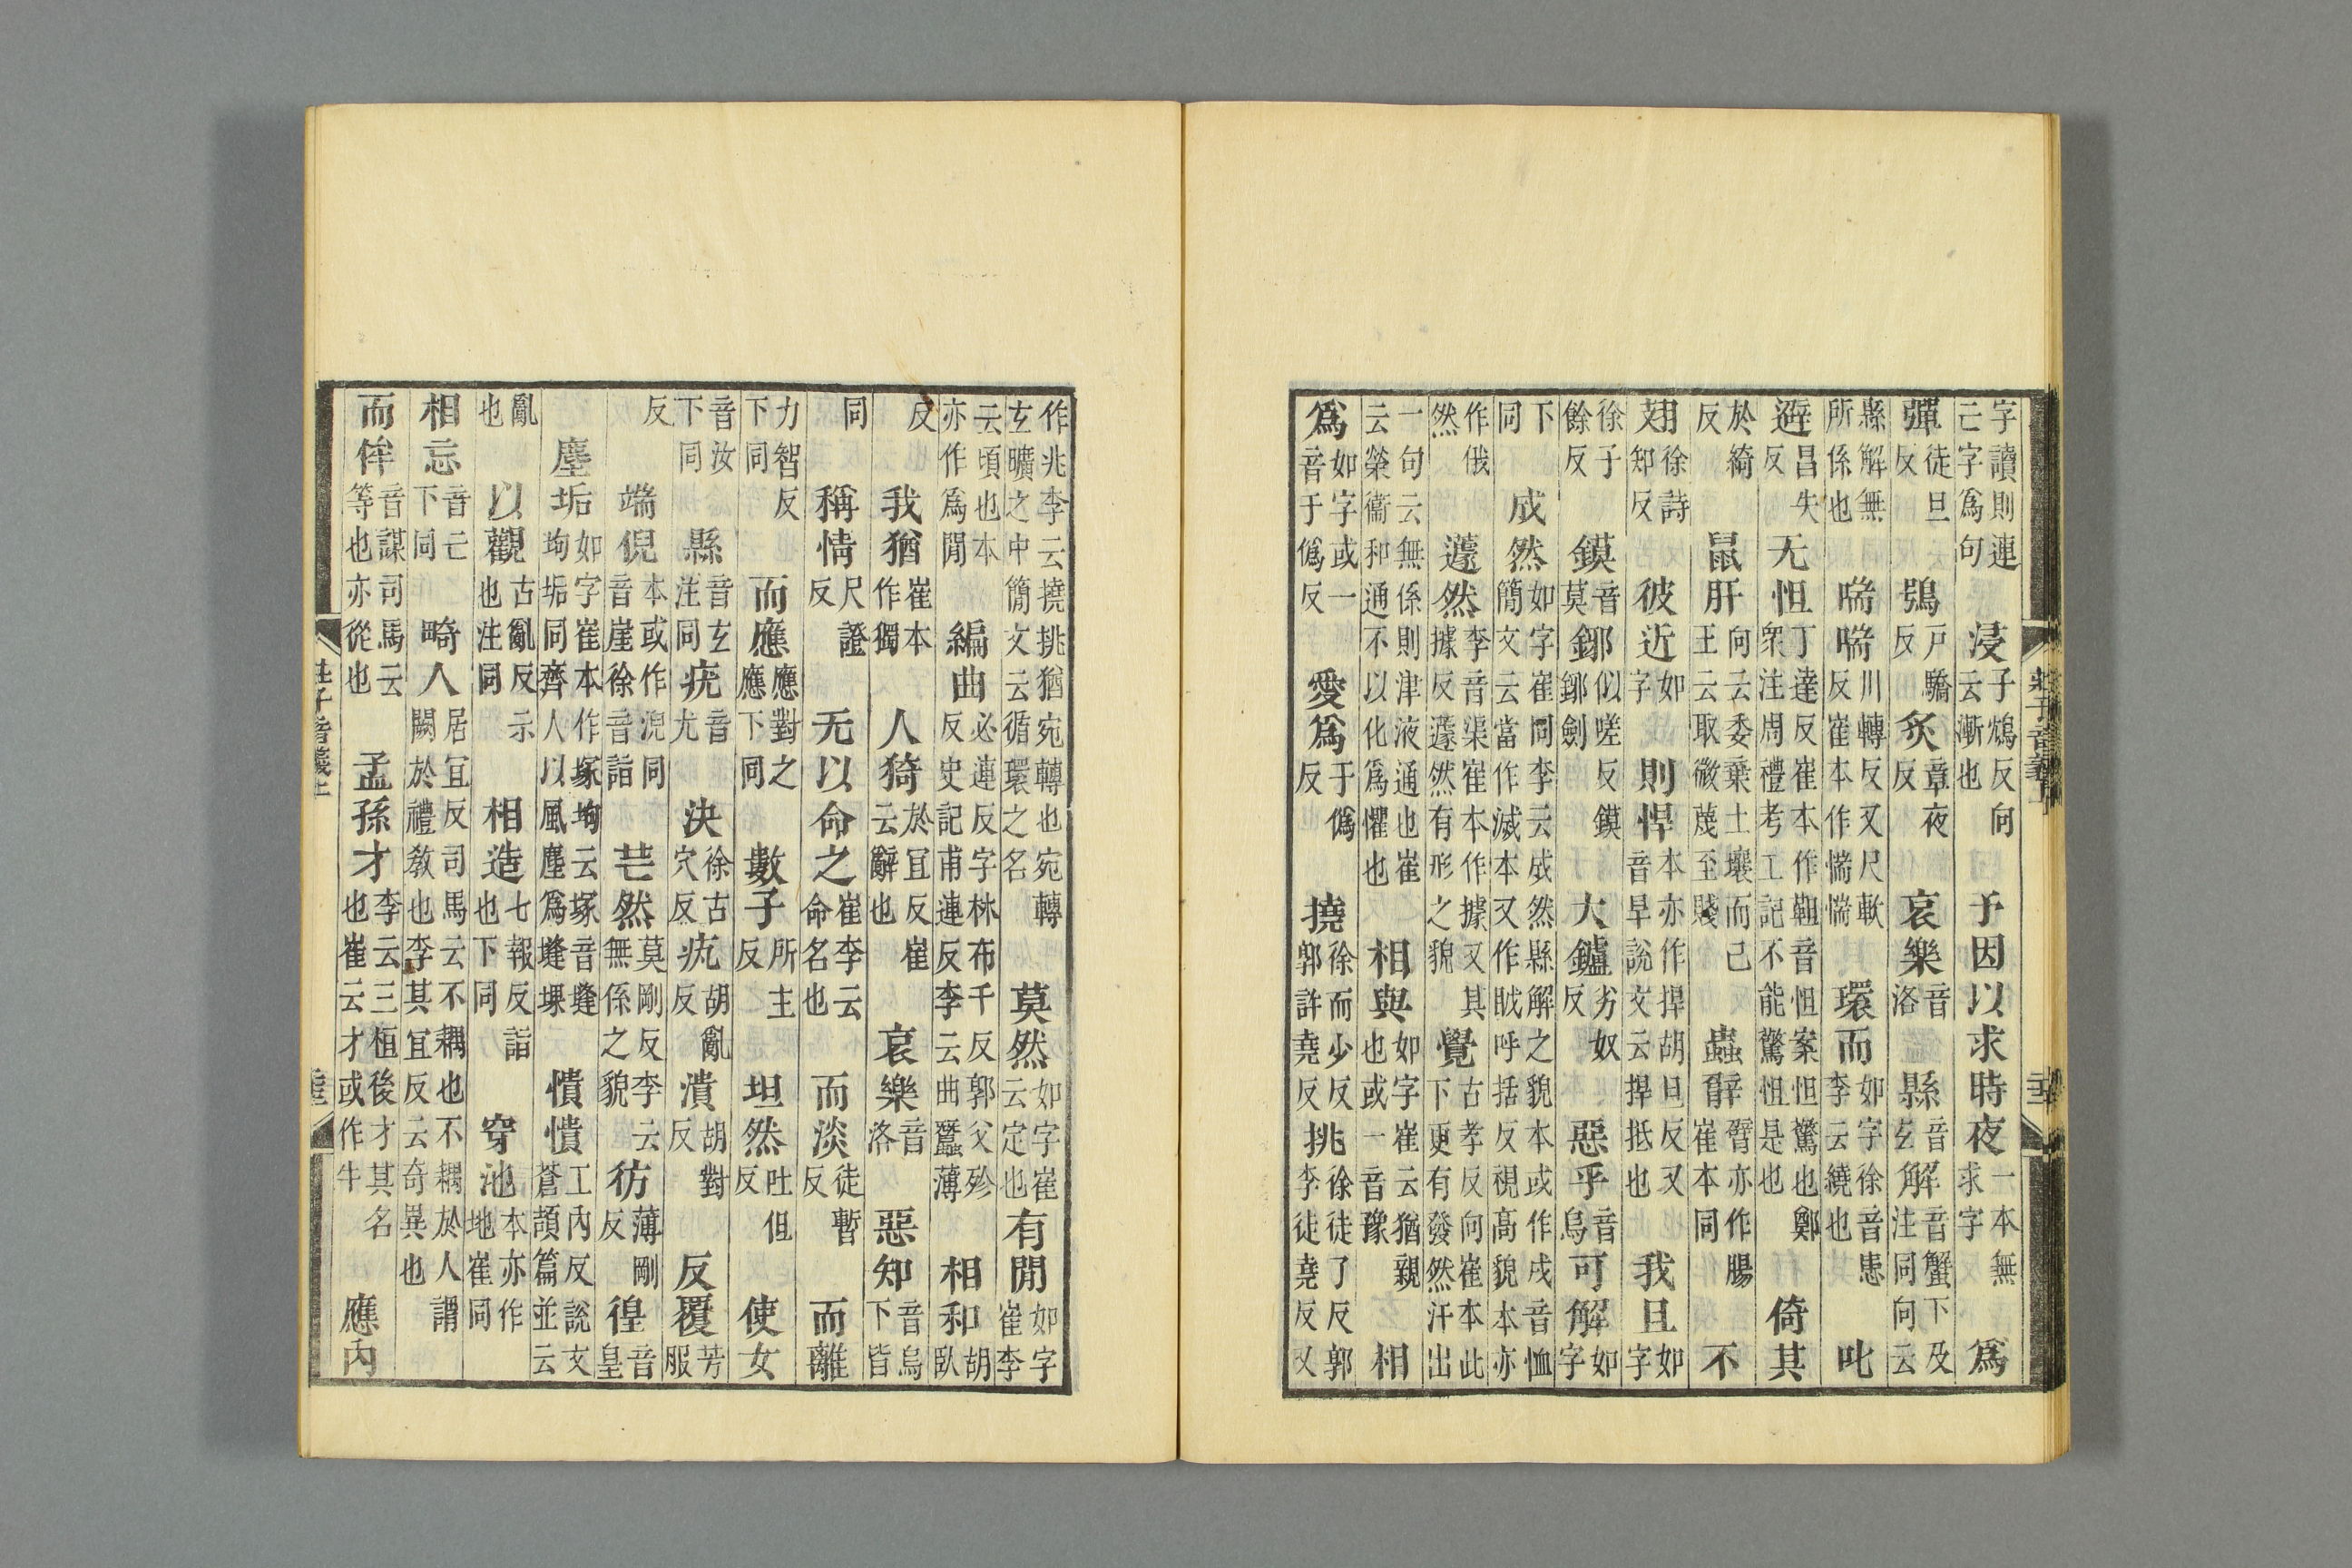 字讀則連亡字爲句 浸子鴆反向云漸也 予因以求時夜一本無求字 爲
彈徒旦反 鴞戸驕反 炙章夜反 哀樂音洛 縣音玄解音蟹下及注同向云
縣解無所係也 喘喘川轉反又尺軟反崔本作惴惴 環而如字徐音患李云繞也 叱
避昌失反 无怛丁達反崔本作靼音怛案怛驚也鄭衆注周禮考工記不能驚怛是也 倚其
於綺反 鼠肝向云委棄土壤而已王云取微蔑至賤 蟲臂臂亦作腸崔本同 不
翅徐詩知反 彼近如字 則悍本亦作捍胡旦反又音旱說文云捍抵也 我且如字
徐子餘反 鏌音莫鋣似嗟反鏌鋣劍 大鑪劣奴反 惡乎音烏可解如字
下同 成然如字崔同李云成然縣解之貌本或作戌音恤簡文云當作滅本又作眓呼括反視高貌本亦
作俄然 蘧然李音渠崔本作據又其據反蘧然有形之貌 覺古孝反向崔本此下更有發然汗出
一句云無係則津液通也崔云榮衞和通不以化爲懼也 相與如字崔云猶親也或一音豫 相
爲如字或一音于僞反 愛爲于僞反 撓徐而少反郭許堯反挑徐徒了反郭李徒堯反又
作兆李云撓挑猶宛轉也宛轉玄曠之中簡文云循環之名 莫然如字崔云定也有閒如字崔李
云頃也本亦作爲閒 編曲必連反字林布千反郭父殄反史記甫連反李云曲蠶薄 相和胡臥
反 我猶崔本作獨 人猗於宜反崔云辭也 哀樂音洛 惡知音烏下皆
同 稱情尺證反 无以命之崔李云命名也 而淡徒暫反 而離
力智反下同 而應應對之應下同 數子所主反 坦然吐但反 使女
音汝下同 縣音玄注同疣音尤 決徐古穴反𤴯胡亂反潰胡對反 反覆芳服
反 端倪本或作淣同音崖徐音詣 芒然莫剛反李云無係之貌 彷薄剛反徨音皇
塵垢如字崔本作塚坸云塚音塳坸垢同齊人以風塵爲塳堁 憒憒工内反說文蒼頡篇並云
亂也 以觀古亂反示也注同 相造七報反詣也下同 穿池本亦作地崔同
相忘音亡下同 畸人居宜反司馬云不耦也不耦於人謂闕於禮教也李其宜反云奇異也
而侔音謀司馬云等也亦從也 孟孫才李云三桓後才其名也崔云才或作牛 應内
莊子音義上
莊子音義上